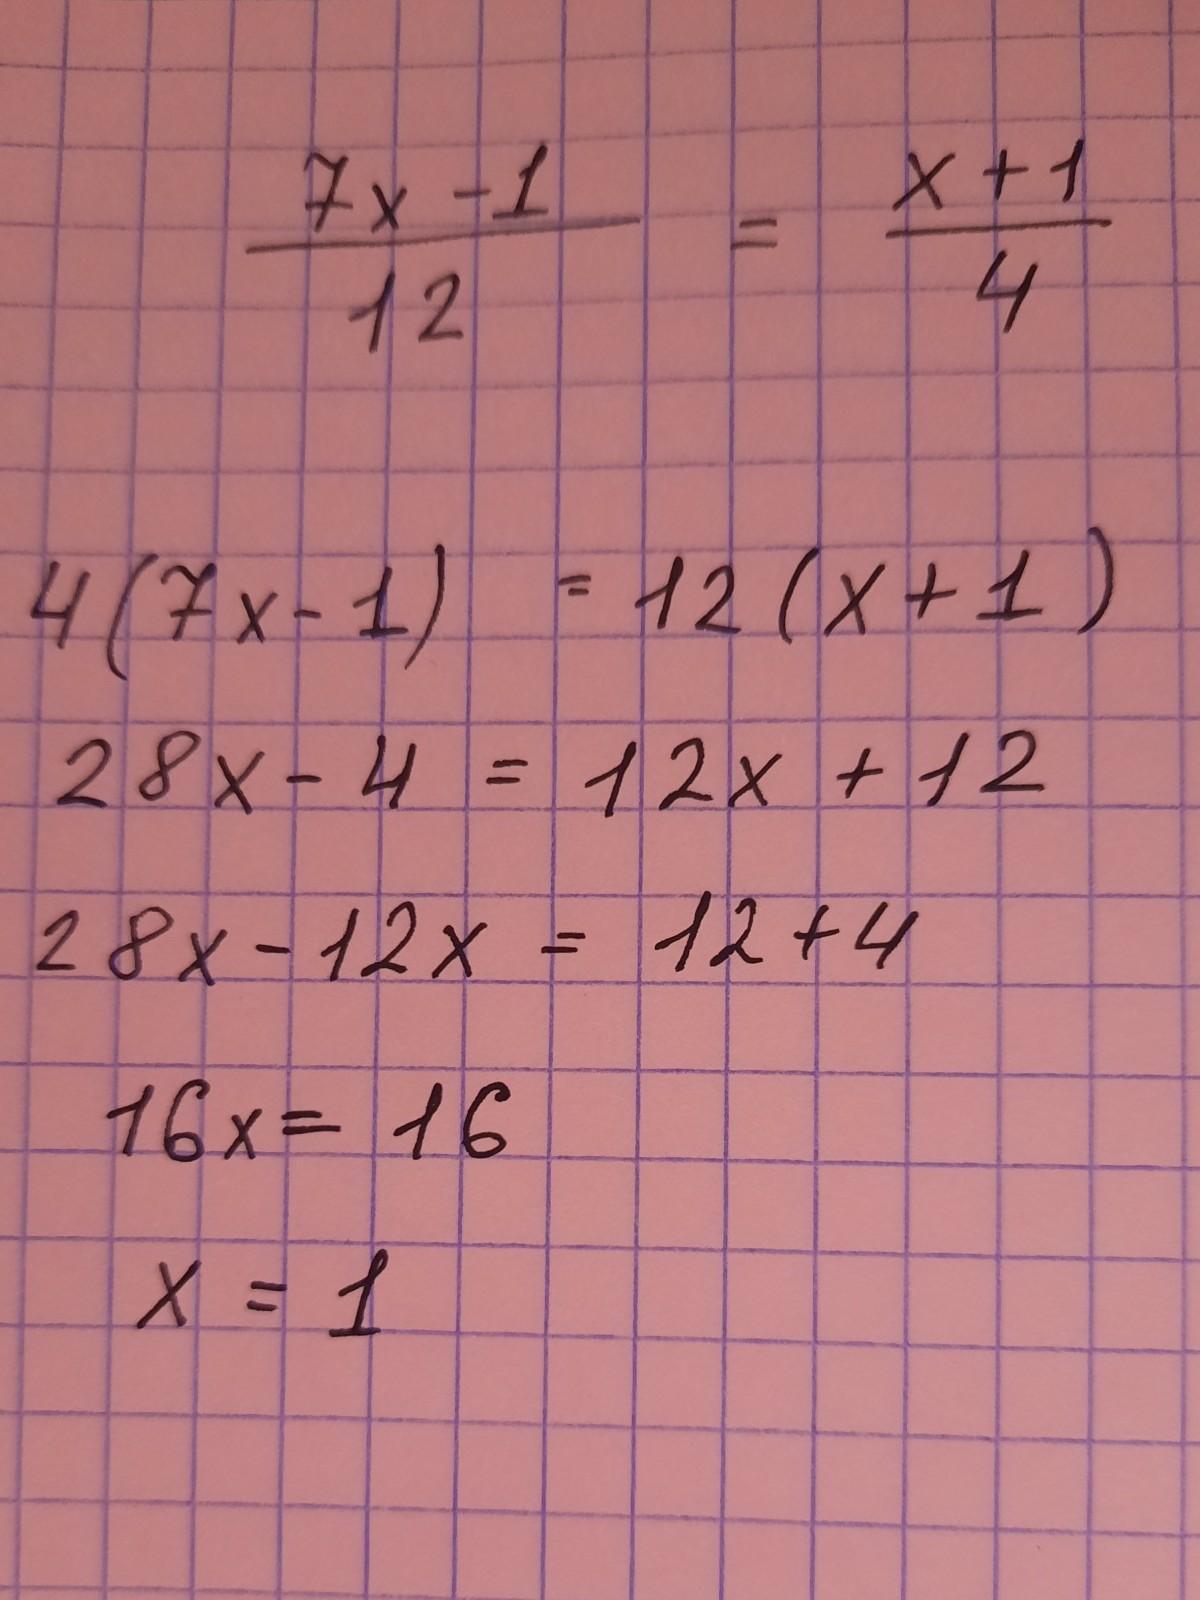 7x - 1 / 12 = x + 1 / 4
4(7x - 1) = 12(x + 1)
28x - 4 = 12x + 12
28x - 12x = 12 + 4
16x = 16
x = 1